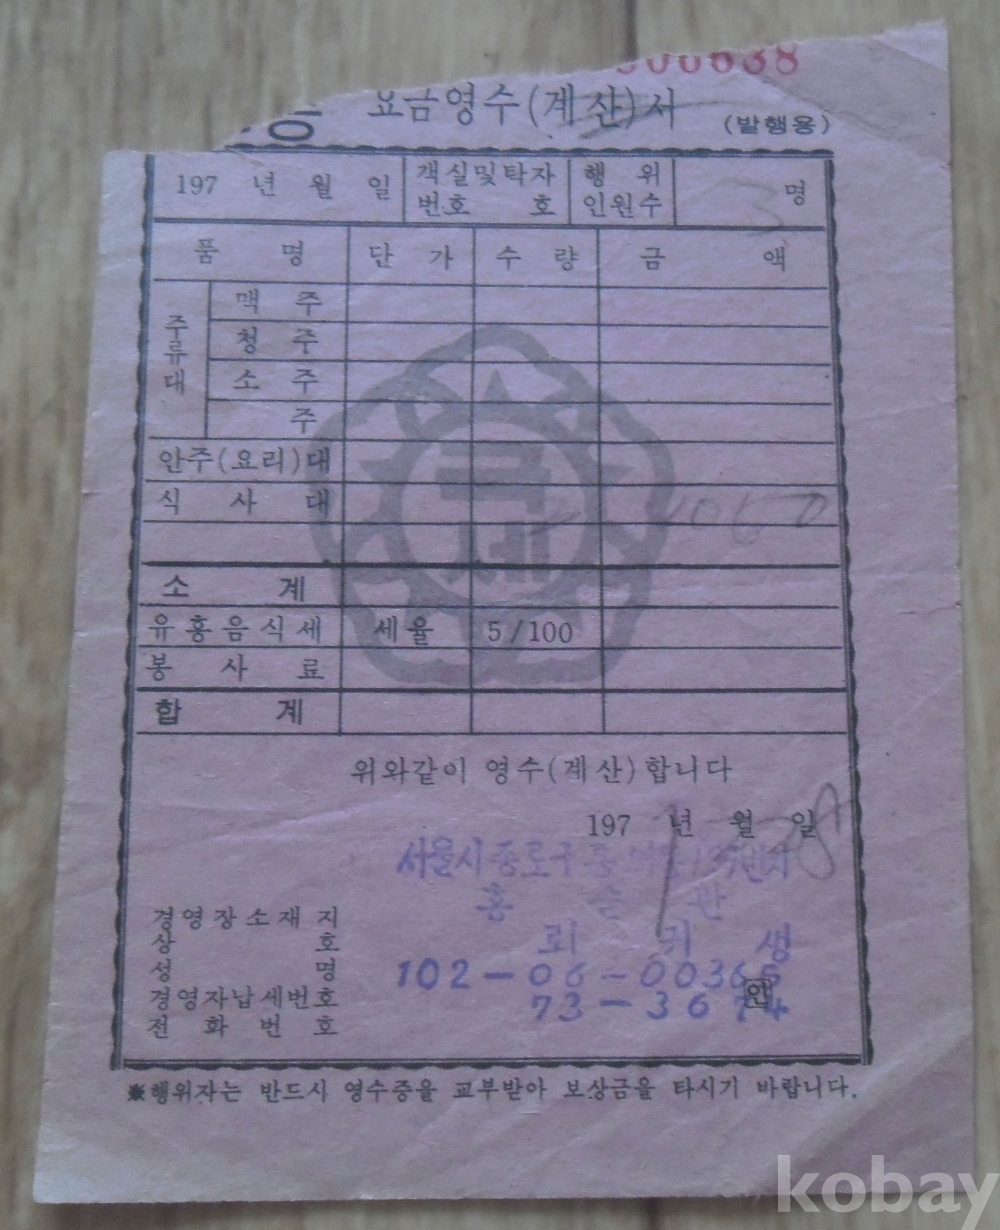 00638
요금영수(계산)서 (발행용)
197 년 월 일 객실및탁자 번호 호 행위 인원수 3 명
품명 단가 수량 금액
주류대
맥주
청주
소주
주
안주(요리)대
식사대
소계
유흥음식세 세율 5/100
봉사료
합계
국세
위와같이 영수(계산)합니다
197 년 월 일
서울시 종로구
경영장소재지
상호
성명
102-06-00365
경영자납세번호
73-3674 인
전화번호
※행위자는 반드시 영수증을 교부받아 보상금을 타시기 바랍니다.
kobay